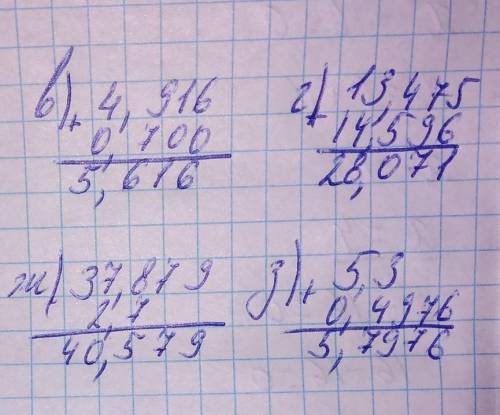 в) 4,916
+ 0,700
5,616
г) 13,475
+ 14,596
28,071
ж) 37,879
2,7
40,579
з) + 5,3
0,4976
5,7976